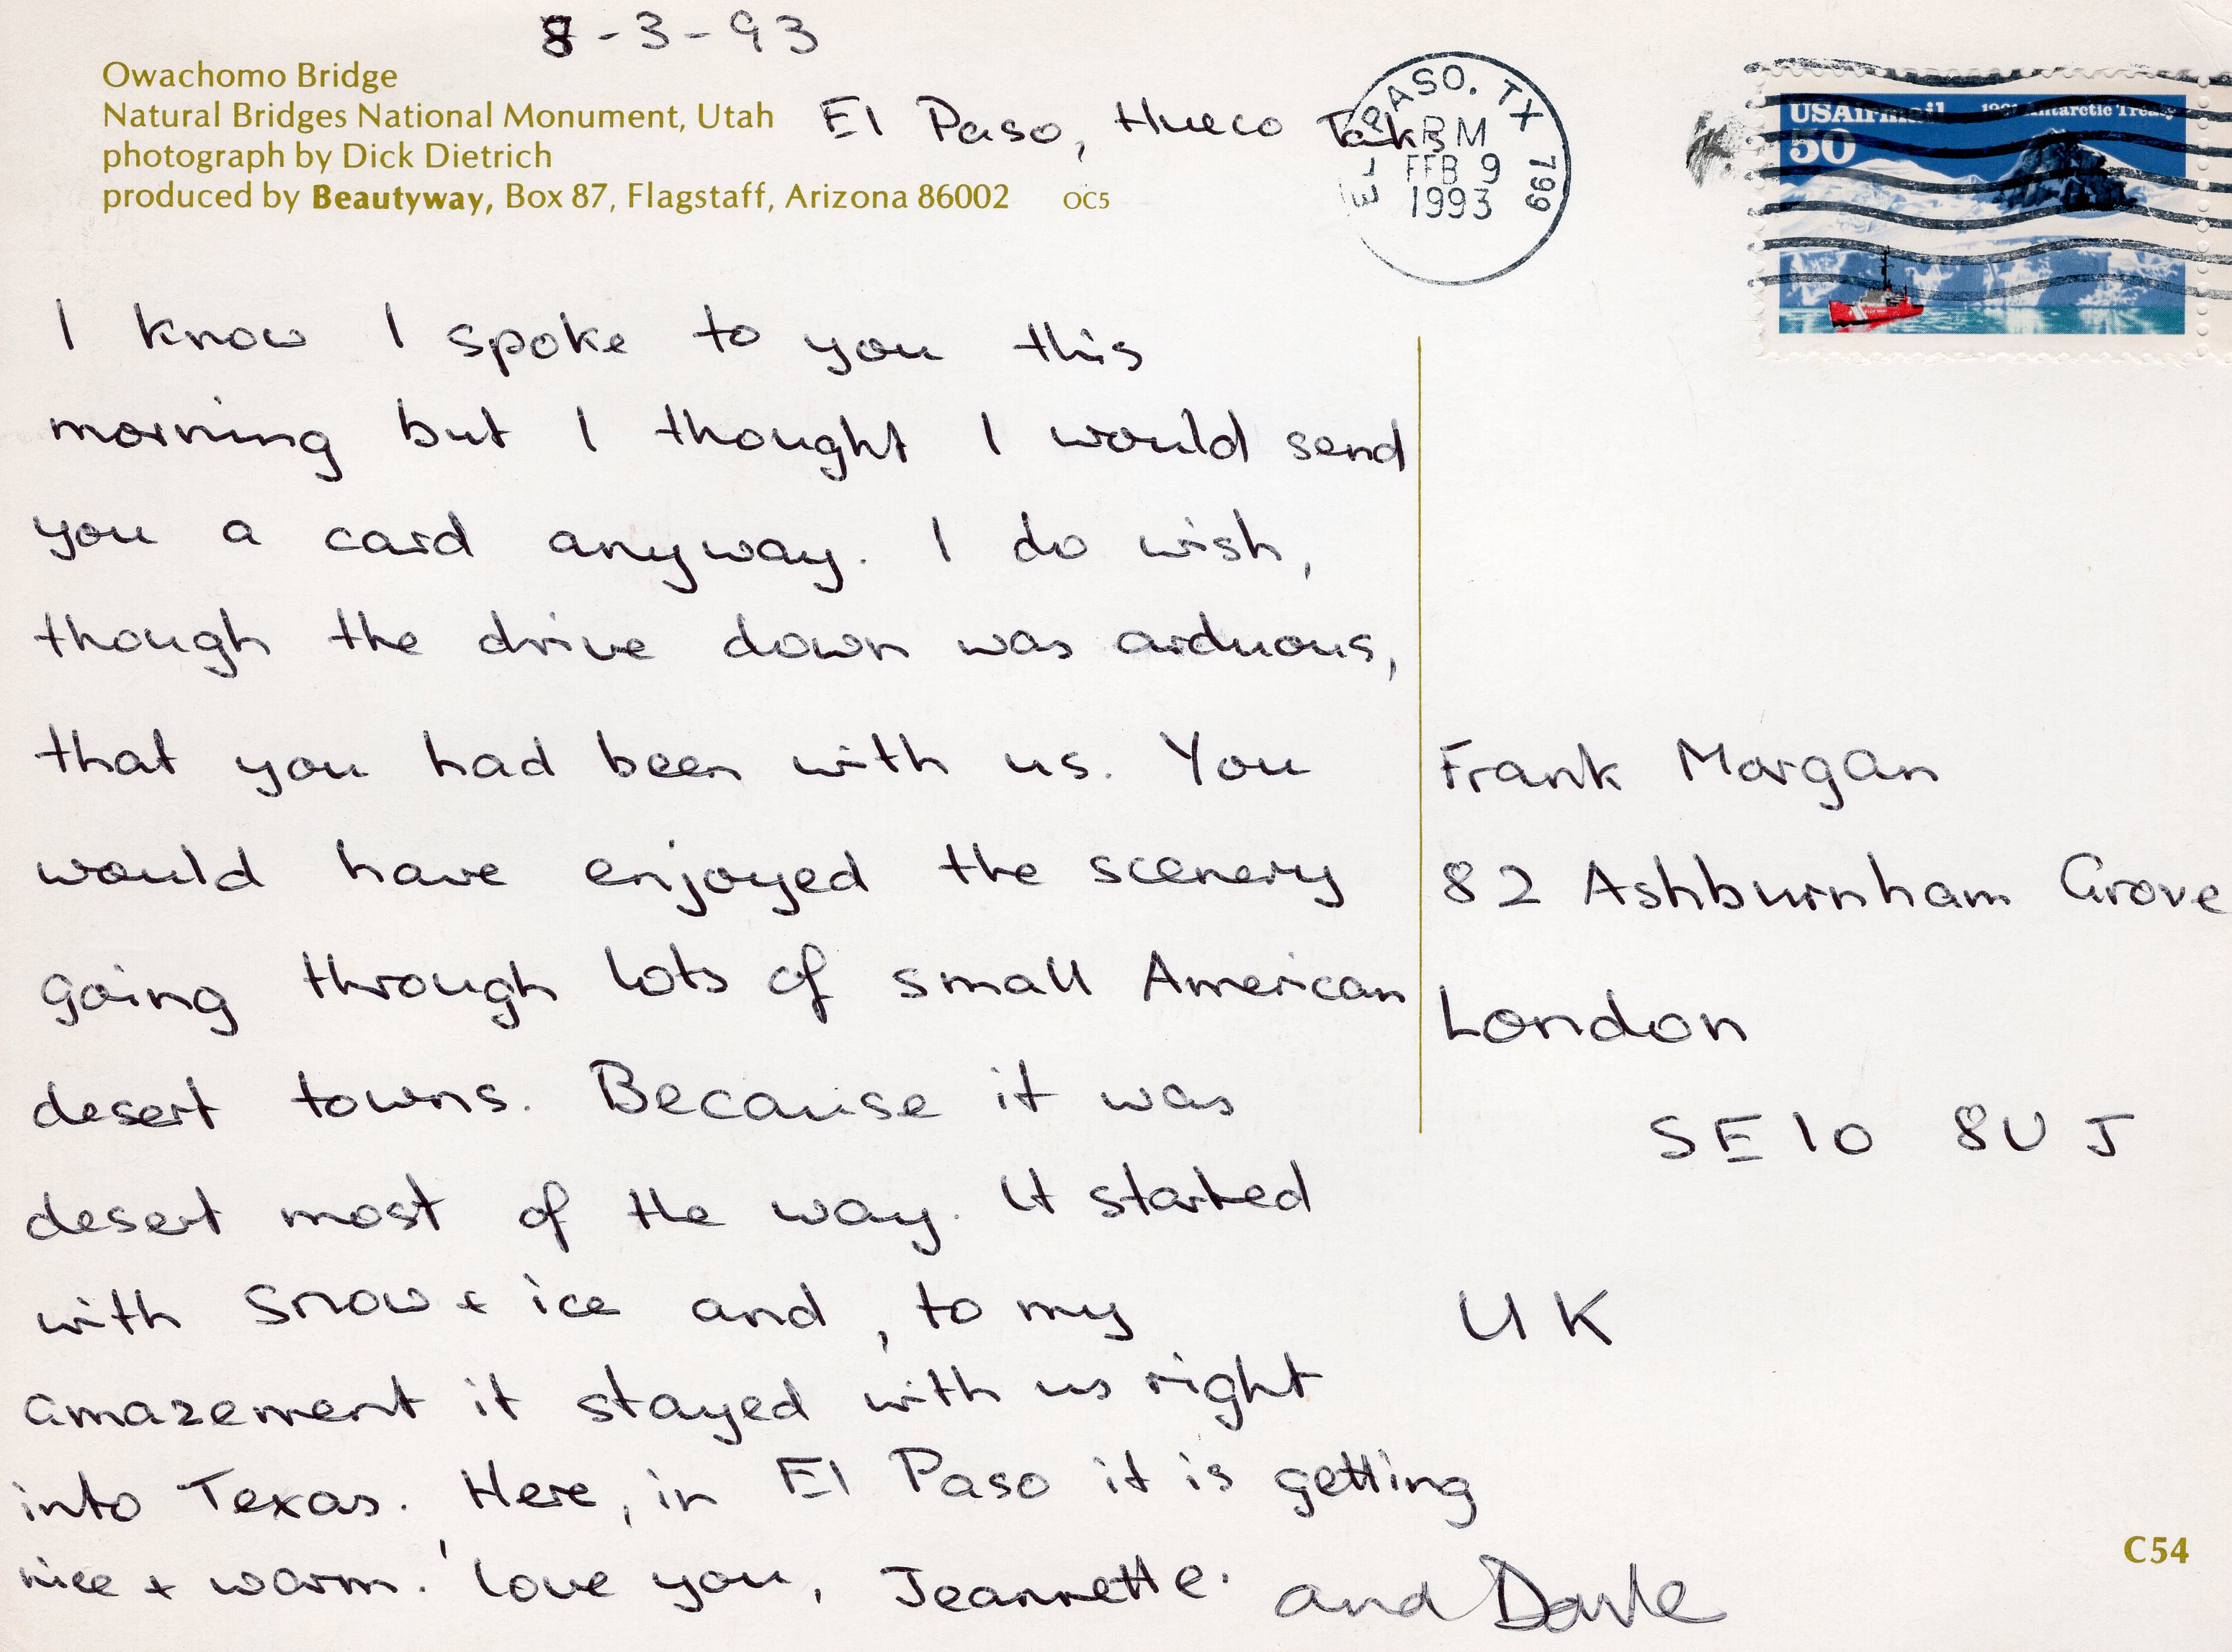 8-3-93
Owachomo Bridge
Natural Bridges National Monument, Utah
photograph by Dick Dietrich
produced by Beautyway, Box 87, Flagstaff, Arizona 86002 OC5
El Paso, Hueco Taks
EL PASO, TX 799
PM
FEB 9
1993
USAirmail 1991 Antarctic Treaty
50
I know I spoke to you this
morning but I thought I would send
you a card anyway. I do wish,
though the drive down was arduous,
that you had been with us. You
would have enjoyed the scenery
going through lots of small American
desert towns. Because it was
desert most of the way. It started
with snow + ice and, to my
amazement it stayed with us right
into Texas. Here, in El Paso it is getting
nice + warm. Love you, Jeannette. and
Frank Morgan
82 Ashburnham Grove
London
SE10 8UJ
UK
C54